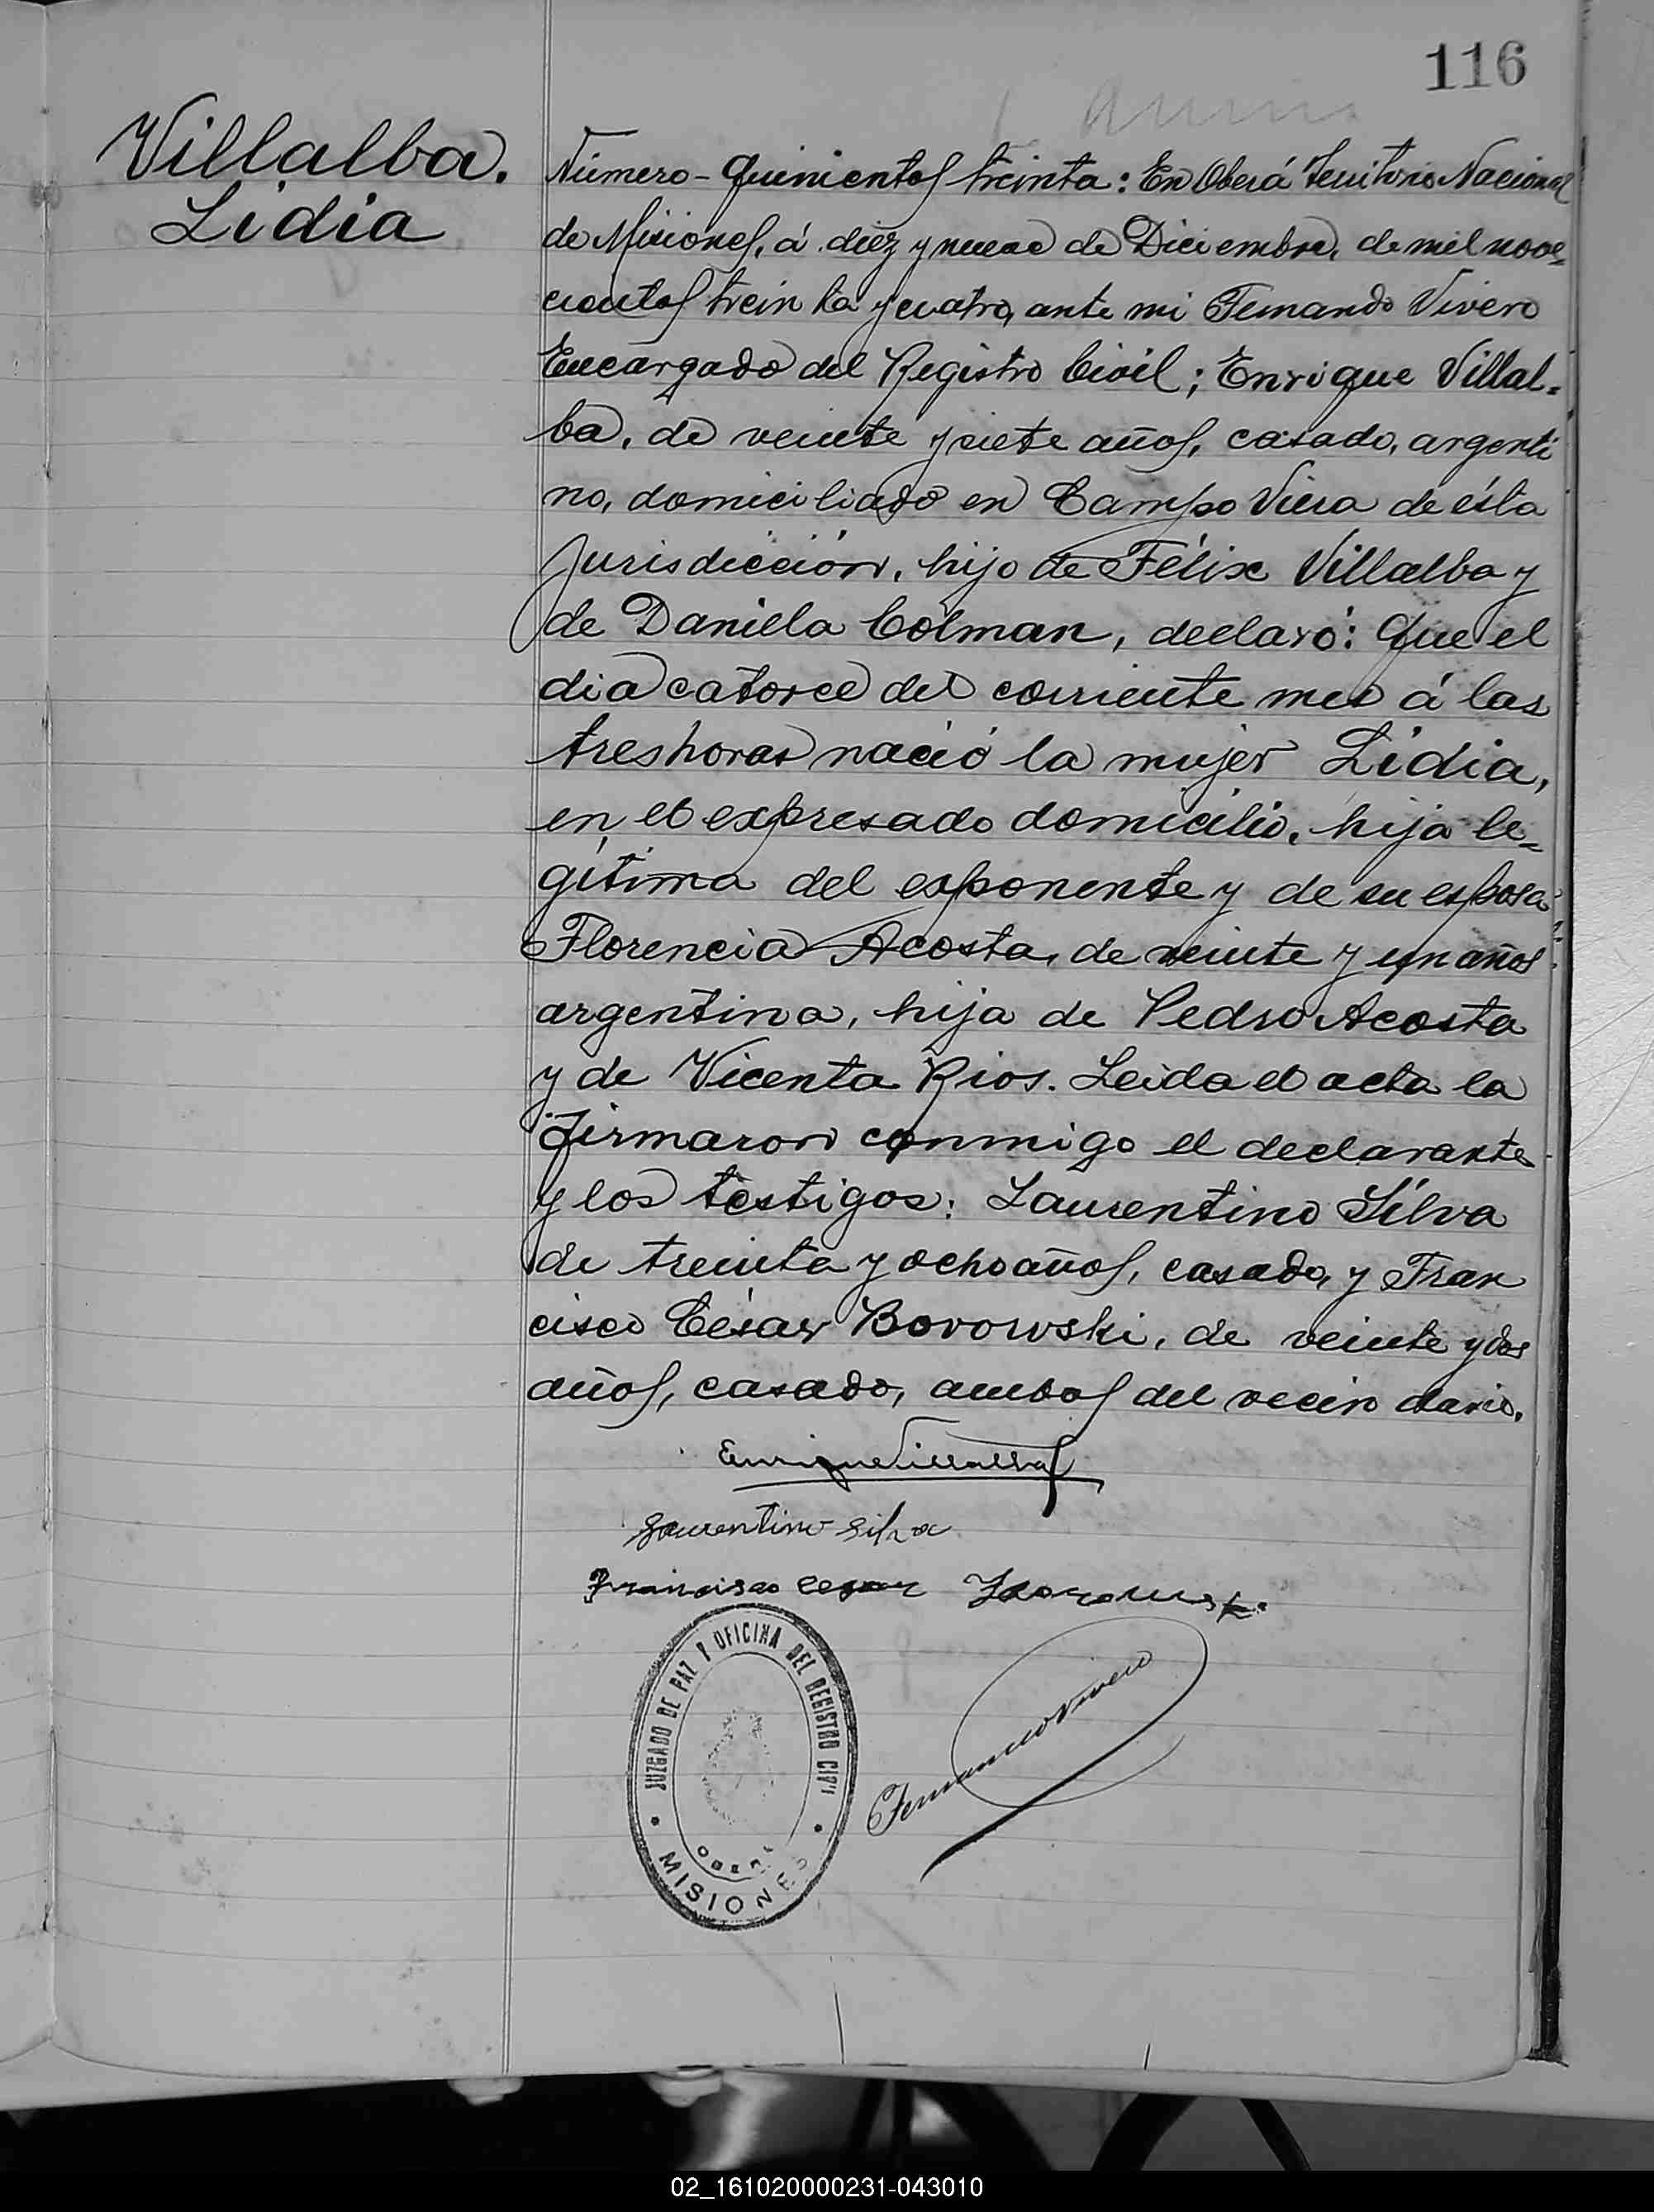 116
Villalba.
Lidia
Número-quinientos treinta: En Oberá Territorio Nacional
de Misiones, á diez y nueve de Diciembre, de mil nove-
cientos treinta y cuatro, ante mi Fernando Vivero
Encargado del Registro Civil; Enrique Villal-
ba, de veinte y siete años, casado, argenti
no, domiciliado en Campo Viera de ésta
Jurisdicción, hijo de Félix Villalba y
de Daniela Colman, declaró: Que el
dia catorce del corriente mes á las
tres horas nació la mujer Lidia,
en el expresado domicilio, hija le-
gítima del exponente y de su esposa
Florencia Acosta, de veinte y un años
argentina, hija de Pedro Acosta
y de Vicenta Rios. Leida el acta la
firmaron conmigo el declarante
y los testigos: Laurentino Silva
de treinta y ocho años, casado, y Fran
cisco César Borowski, de veinte y dos
años, casado, ambos del vecindario.
Enrique Villalba
Laurentino Silva
Francisco Cesar Borowski
Fernando Vivero
JUZGADO DE PAZ Y OFICINA DEL REGISTRO CIVIL
OBERÁ
MISIONES
02_161020000231-043010